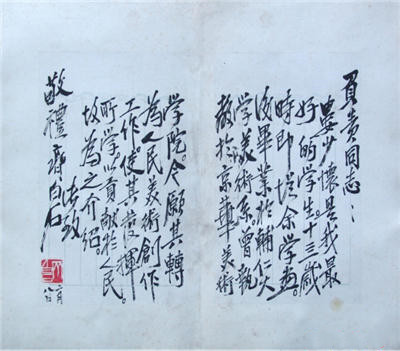 負责同志：
婁少懷是我最
好的学生。十三歲
時即從余学画。
後畢業於輔仁大
学美術系，曾執
教於京華美術
学院。今願其轉
為人民美術創作
工作，使其發揮
所学以貢献於人民。
故為之介紹。
此致
敬禮 齊白石